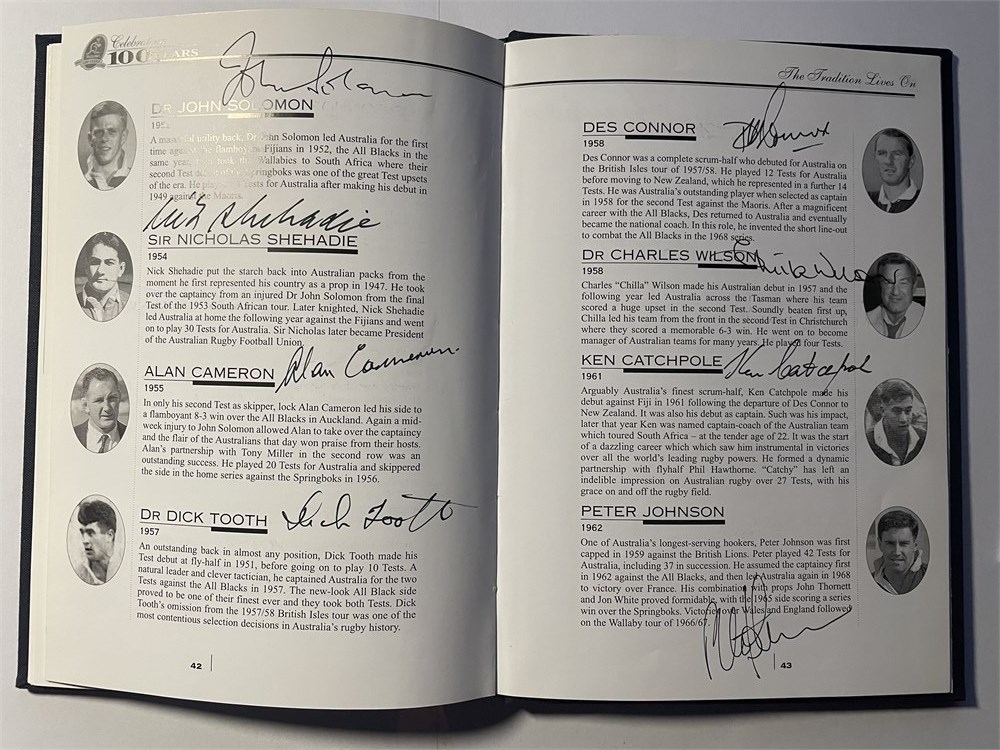 Celebrating
100 YEARS
John Solomon
DR JOHN SOLOMON
195
A masterful utility back, Dr John Solomon led Australia for the first
time against the flamboyant Fijians in 1952, the All Blacks in the
same year, took the Wallabies to South Africa where their
second Test defeat of the Springboks was one of the great Test upsets
of the era. He played Tests for Australia after making his debut in
1949 against the Maoris.
Nick Shehadie
SIR NICHOLAS SHEHADIE
1954
Nick Shehadie put the starch back into Australian packs from the
moment he first represented his country as a prop in 1947. He took
over the captaincy from an injured Dr John Solomon from the final
Test of the 1953 South African tour. Later knighted, Nick Shehadie
led Australia at home the following year against the Fijians and went
on to play 30 Tests for Australia. Sir Nicholas later became President
of the Australian Rugby Football Union.
Alan Cameron
ALAN CAMERON
1955
In only his second Test as skipper, lock Alan Cameron led his side to
a flamboyant 8-3 win over the All Blacks in Auckland. Again a mid-
week injury to John Solomon allowed Alan to take over the captaincy
and the flair of the Australians that day won praise from their hosts.
Alan's partnership with Tony Miller in the second row was an
outstanding success. He played 20 Tests for Australia and skippered
the side in the home series against the Springboks in 1956.
Dick Tooth
DR DICK TOOTH
1957
An outstanding back in almost any position, Dick Tooth made his
Test debut at fly-half in 1951, before going on to play 10 Tests. A
natural leader and clever tactician, he captained Australia for the two
Tests against All Blacks in 1957. The new-look All Black side
proved to be one of their finest ever and they took both Tests. Dick
Tooth's omission from the 1957/58 British Isles tour was one of the
most contentious selection decisions in Australia's rugby history.
42
The Tradition Lives On
DES CONNOR
1958
Des Connor was a complete scrum-half who debuted for Australia on
the British Isles tour of 1957/58. He played 12 Tests for Australia
before moving to New Zealand, which he represented in a further 14
Tests. He was Australia's outstanding player when selected as captain
in 1958 for the second Test against the Maoris. After a magnificent
career with the All Blacks, Des returned to Australia and eventually
became the national coach. In this role, he invented the short line-out
to combat the All Blacks in the 1968 series.
DR CHARLES WILSON
1958
Charles "Chilla" Wilson made his Australian debut in 1957 and the
following year led Australia across the Tasman where his team
scored a huge upset in the second Test. Soundly beaten first up,
Chilla led his team from the front in the second Test in Christchurch
where they scored a memorable 6-3 win. He went on to become
manager of Australian teams for many years. He played four Tests.
Ken Catchpole
KEN CATCHPOLE
1961
Arguably Australia's finest scrum-half, Ken Catchpole made his
debut against Fiji in 1961 following the departure of Des Connor to
New Zealand. It was also his debut as captain. Such was his impact,
later that year Ken was named captain-coach of the Australian team
which toured South Africa – at the tender age of 22. It was the start
of a dazzling career which saw him instrumental in victories
over all the world's leading rugby powers. He formed a dynamic
partnership with flyhalf Phil Hawthorne. "Catchy" has left an
indelible impression on Australian rugby over 27 Tests, with his
grace on and off the rugby field.
PETER JOHNSON
1962
One of Australia's longest-serving hookers, Peter Johnson was first
capped in 1959 against the British Lions. Peter played 42 Tests for
Australia, including 37 in succession. He assumed the captaincy first
in 1962 against the All Blacks, and then led Australia again in 1968
to victory over France. His combination props John Thornett
and Jon White proved formidable, with the 1965 side scoring a series
win over the Springboks. Victories over Wales and England followed
on the Wallaby tour of 1966/67.
43